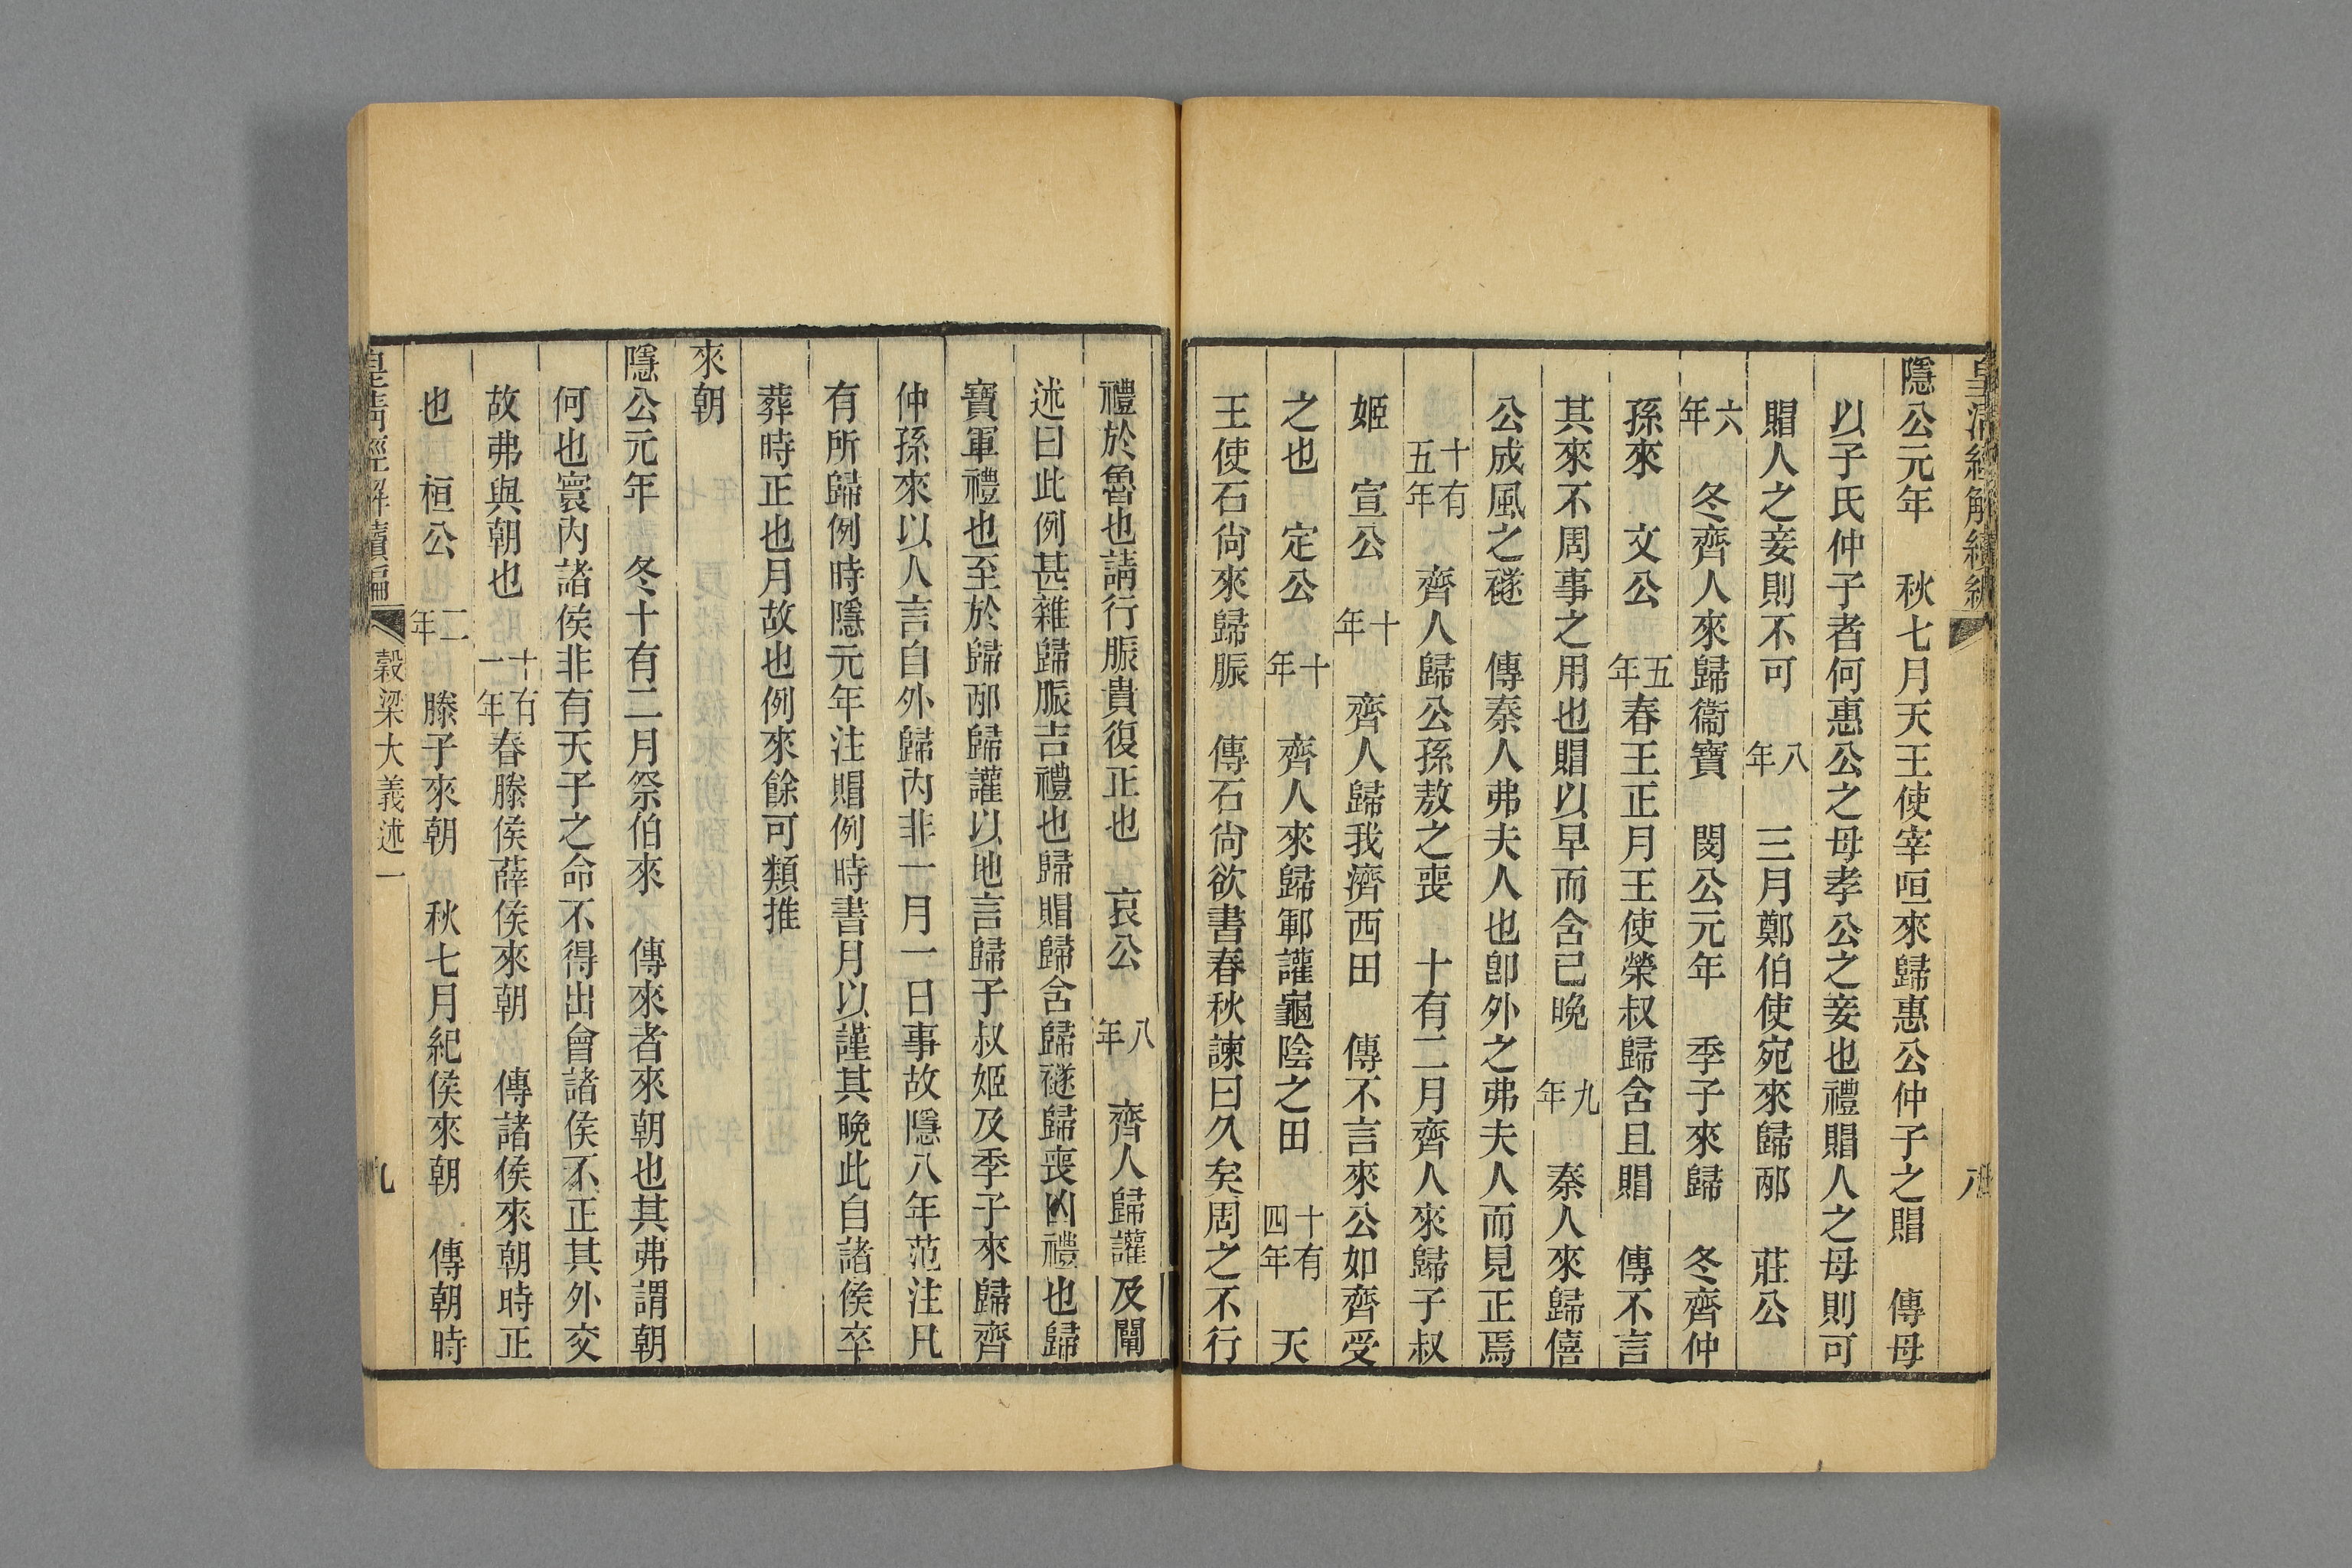 皇清經解續編 八
隱公元年 秋七月天王使宰咺來歸惠公仲子之賵 傳母
以子氏仲子者何惠公之母孝公之妾也禮賵人之母則可
賵人之妾則不可 八年 三月鄭伯使宛來歸邴 莊公
六年 冬齊人來歸衞寶 閔公元年 季子來歸 冬齊仲
孫來 文公 五年春王正月王使榮叔歸含且賵 傳不言
其來不周事之用也賵以早而含已晚 九年 秦人來歸僖
公成風之襚 傳秦人弗夫人也卽外之弗夫人而見正焉
十有五年 齊人歸公孫敖之喪 十有二月齊人來歸子叔
姬 宣公 十年 齊人歸我濟西田 傳不言來公如齊受
之也 定公 十年 齊人來歸鄆讙龜陰之田 十有四年 天
王使石尙來歸脤 傳石尙欲書春秋諫曰久矣周之不行
禮於魯也請行脤貴復正也 哀公 八年 齊人歸讙及闡
述曰此例甚雜歸脤吉禮也歸賵歸含歸襚歸喪凶禮也歸
寶軍禮也至於歸邴歸讙以地言歸子叔姬及季子來歸齊
仲孫來以人言自外歸內非一月一日事故隱八年范注凡
有所歸例時隱元年注賵例時書月以謹其晚此自諸侯卒
葬時正也月故也例來餘可類推
來朝
隱公元年 冬十有二月祭伯來 傳來者來朝也其弗謂朝
何也寰內諸侯非有天子之命不得出會諸侯不正其外交
故弗與朝也 十有一年春滕侯薛侯來朝 傳諸侯來朝時正
也 桓公 二年 滕子來朝 秋七月紀侯來朝 傳朝時
皇清經解續編 穀梁大義述一 九